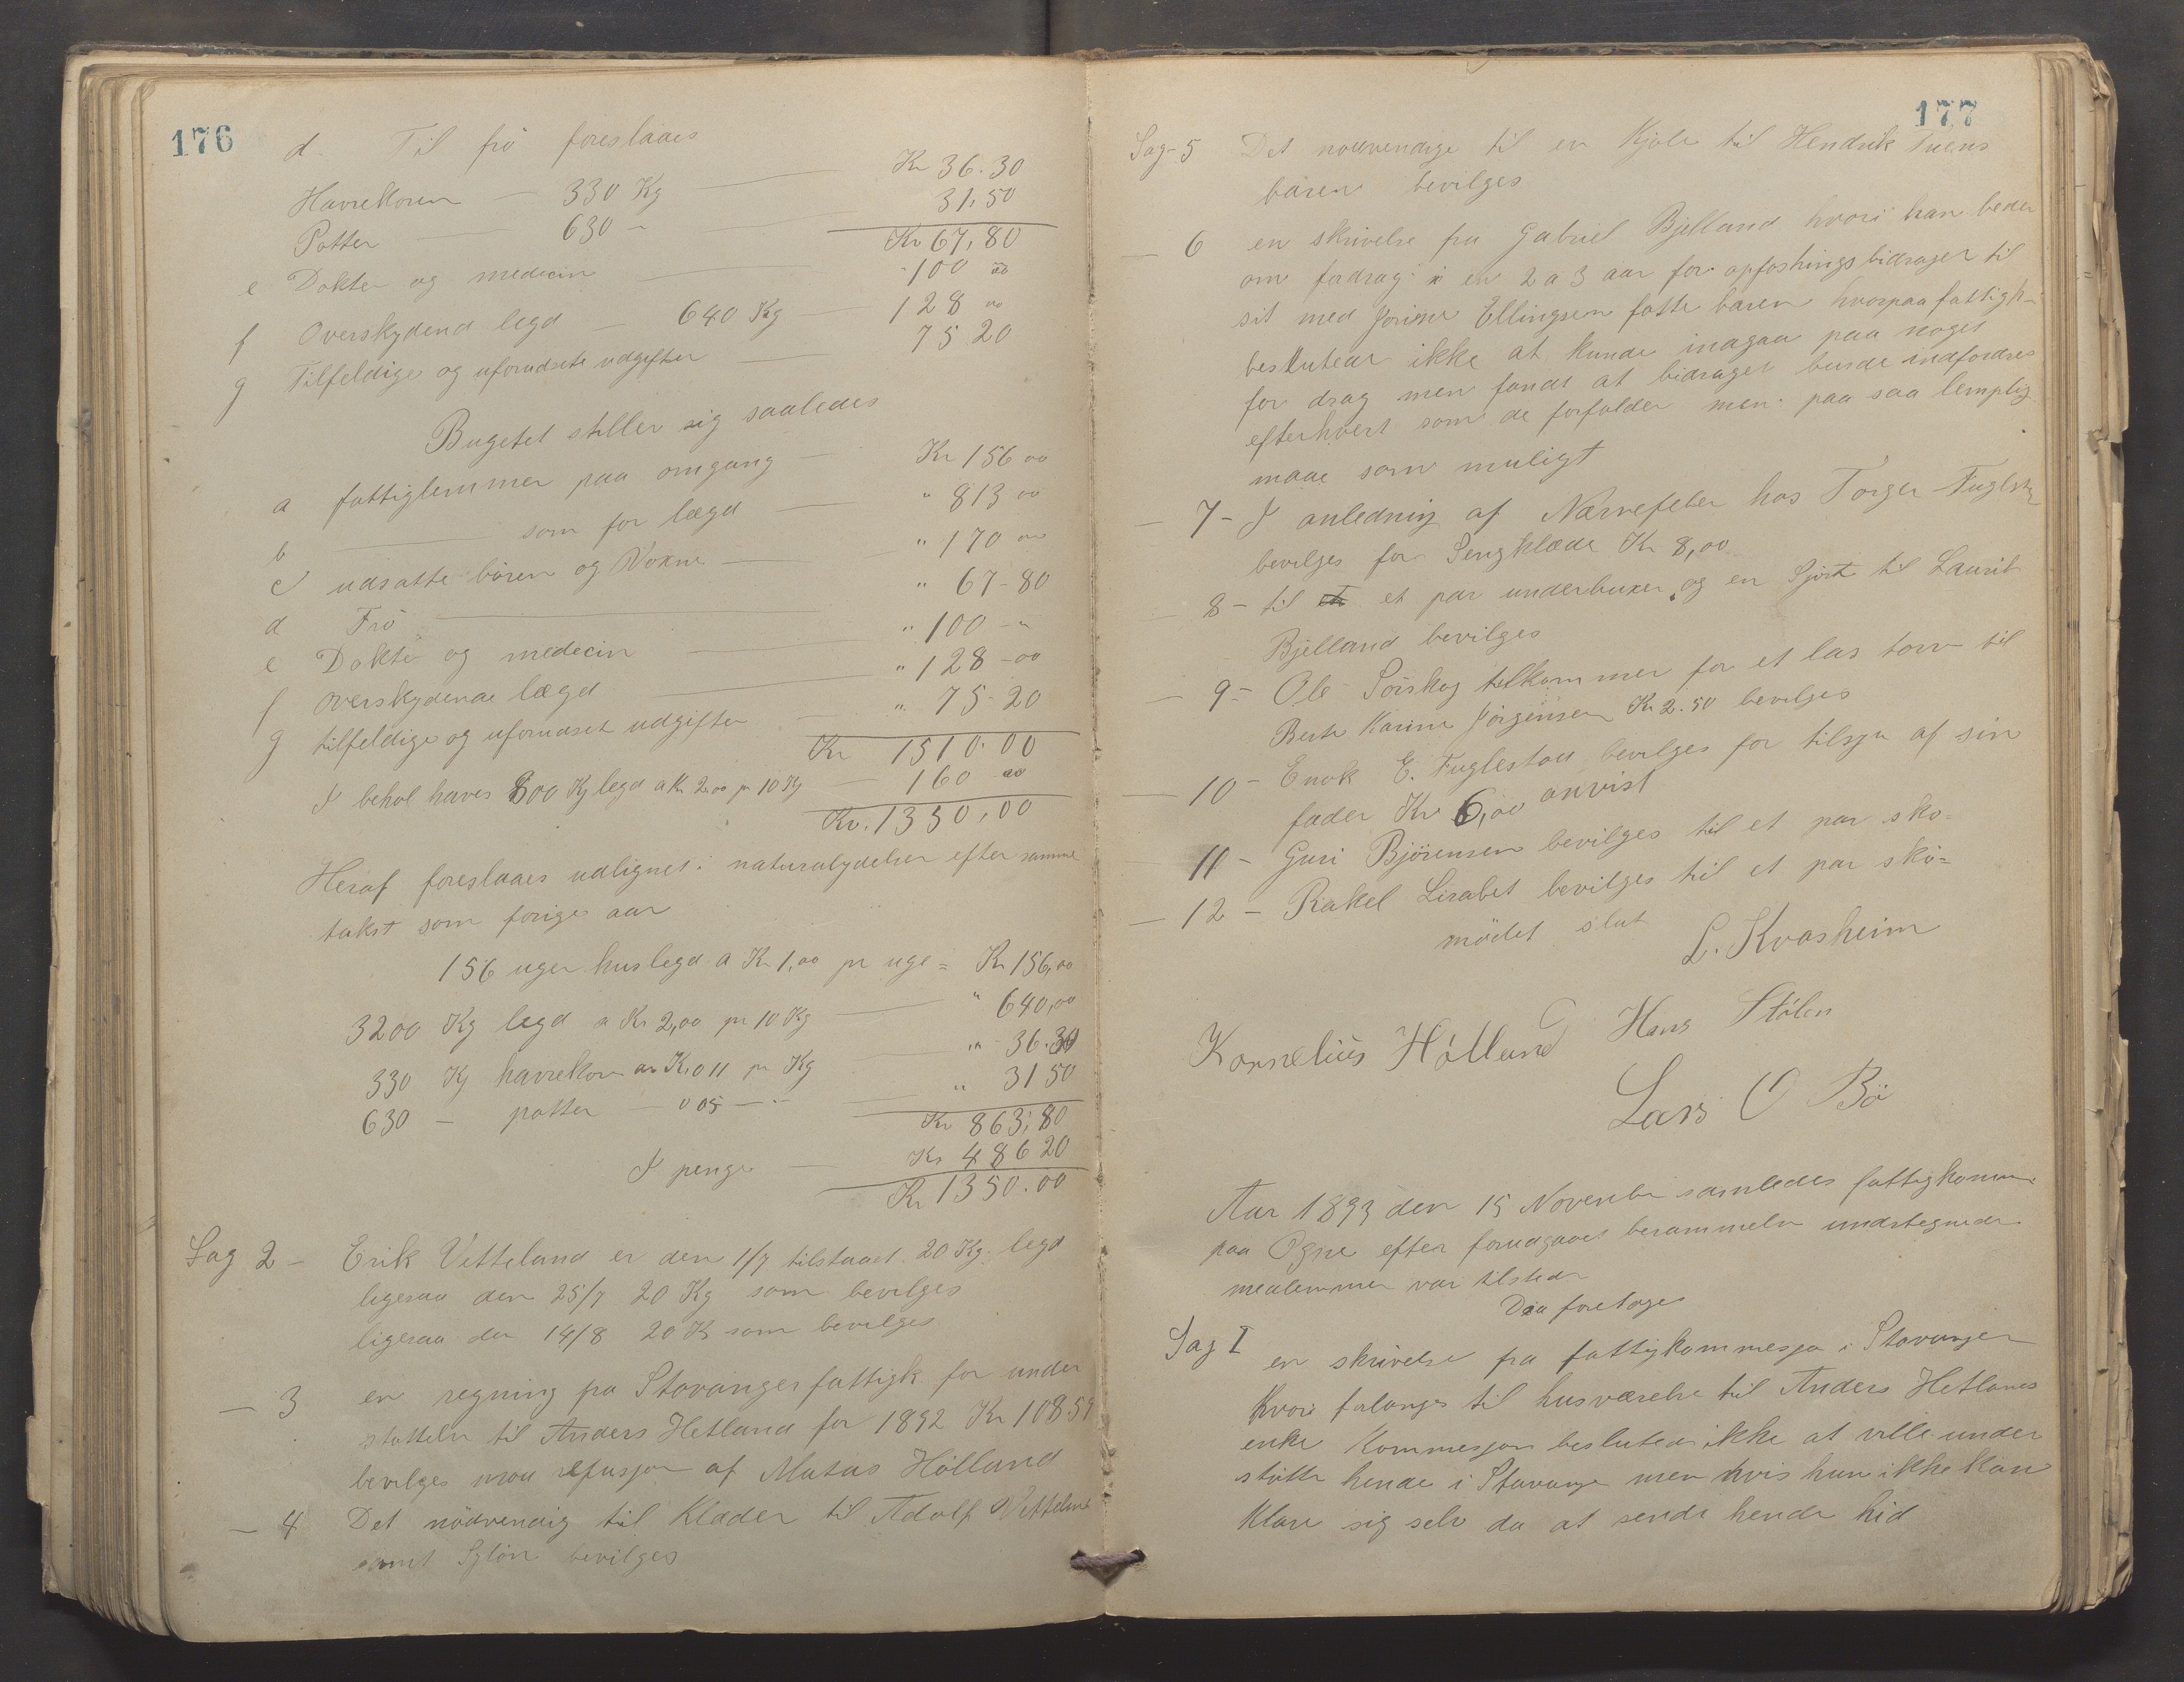 176
d Til frö foreslaaes
Havrekoren — 330 Kg — Kr 36.30
Potter — 630 — 31,50
Kr 67,80
e Dokter og medecin — 100 00
f Overskydend legd — 640 Kg — 128 00
g Tilfeldige og uforudsete udgifter — 75 20
Bugetet stiller sig saaledes
a fattiglemmer paa omgang — Kr 156 00
b — som for lægd — " 813 00
c udsatte bören og Voxne — " 170 00
d Frö — " 67-80
e Dokter og medecin — " 100 - "
f overskydende lægd — " 128-00
g tilfeldige og uforudset udgifter — " 75-20
Kr 1510.00
I behol haves 800 Kg legd a Kr 2.00 pr 10 Kg — 160 00
Kr. 1350,00
Heraf foreslaaes udlignet i naturalydelser efter samme
takst som forige aar
156 uger huslegd a Kr 1,00 pr uge = Kr 156,00
3200 Kg legd a Kr 2,00 pr 10 Kg — " 640,00
330 Kg havrekorn a Kr 0 11 pr Kg — " 36.30
630 — potter — 0 05 — " 31 50
Kr 863,80
I penge — Kr 486 20
Kr 1350.00
Sag 2 - Erik Vetteland er den 1/7 tilstaaet 20 Kg legd
ligesaa den 25/7 20 Kg som bevilges
ligesaa den 14/8 20 K som bevilges
— 3 en regning fra Stavanger fattigk for under
stöttelse til Anders Hetland for 1892 Kr 108.59
bevilges mod refusjon af Matias Hölland
— 4 Det nödvendig til Klæder til Adolf Vetteland
samt Splön bevilges
177
Sag-5 Det nödvendige til en Kjole til Hendrik Tuens
baren bevilges
— 6 en skrivelse fra Gabriel Bjelland hvori han beder
om fordrag i en 2 a 3 aar for opfostringsbidraget til
sit med Jorine Ellingsen fötte baren hvorpaa fattigk-
beslutede ikke at kunde inagaa paa noget
for drag men fandt at bidraget burde indfordres
efterhvert som de forfalder men paa saa lemplig
maae som muligt
— 7 - I anledning af Nervefeber hos Torger Fuglstad
bevilges for Sengklæde Kr 8,00
— 8 - til et par underbuxer og en Sjort til Laurit
Bjelland bevilges
— 9 - Ole Sörskog tilkommer for et las torv til
Berte Karine Jörgensen Kr 2.50 bevilges
— 10 - Enok E. Fuglestad bevilges for tilsyn af sin
fader Kr 6,00 anvist
— 11 - Guri Björensen bevilges til et par sko-
— 12 - Rakel Lisabet bevilges til et par sko-
mödet slut
L. Kvasheim
Kornelius Hölland Hans Stölen
Lars O Bö
Aar 1893 den 15 November samledes fattigkomm
paa Ogne efter forudgaaet berammelse undertegnede
medlemmer var tilstede
Daa foretoges
Sag I en skrivelse fra fattigkommesjon i Stavanger
hvori forlanges til husværelse til Anders Hetlands
enke Kommesjon besluted ikke at ville under
stötte hende i Stavanger men hvis hun ikke kan
Klare sig selv da at sende hende hid